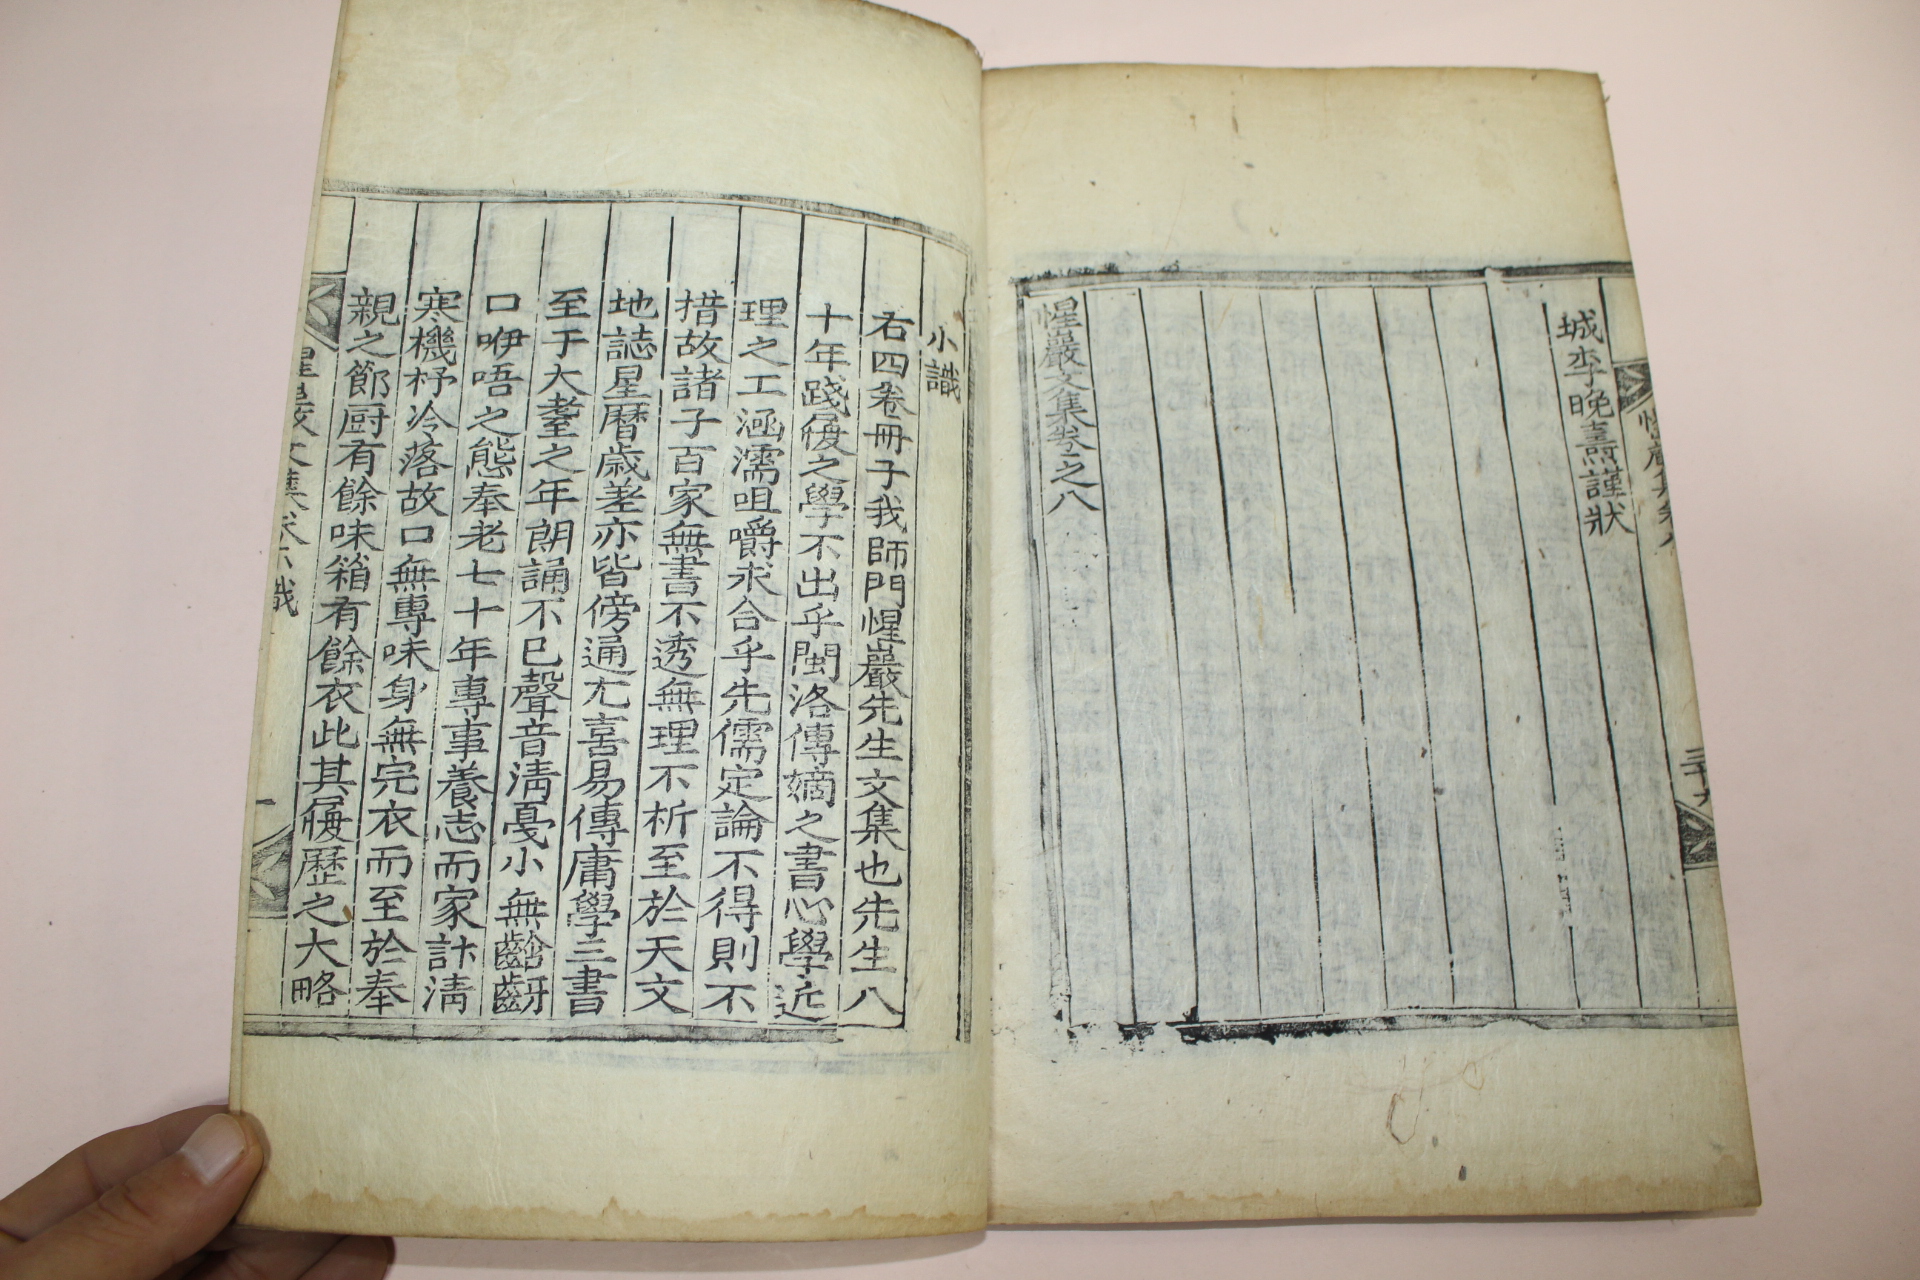 城李晩燾謹狀
惺巖文集卷之八
小識
右四卷冊子我師門惺巖先生文集也先生八
十年踐履之學不出乎閩洛傳嫡之書心學近
理之工涵濡咀嚼求合乎先儒定論不得則不
措故諸子百家無書不透無理不析至於天文
地誌星曆歲差亦皆傍通尤喜易傳庸學三書
至于大耋之年朗誦不已聲音淸憂小無齡齖
口咿唔之態奉老七十年專事養志而家計淸
寒機杼冷落故口無專味身無完衣而至於奉
親之節厨有餘味箱有餘衣此其履歷之大略